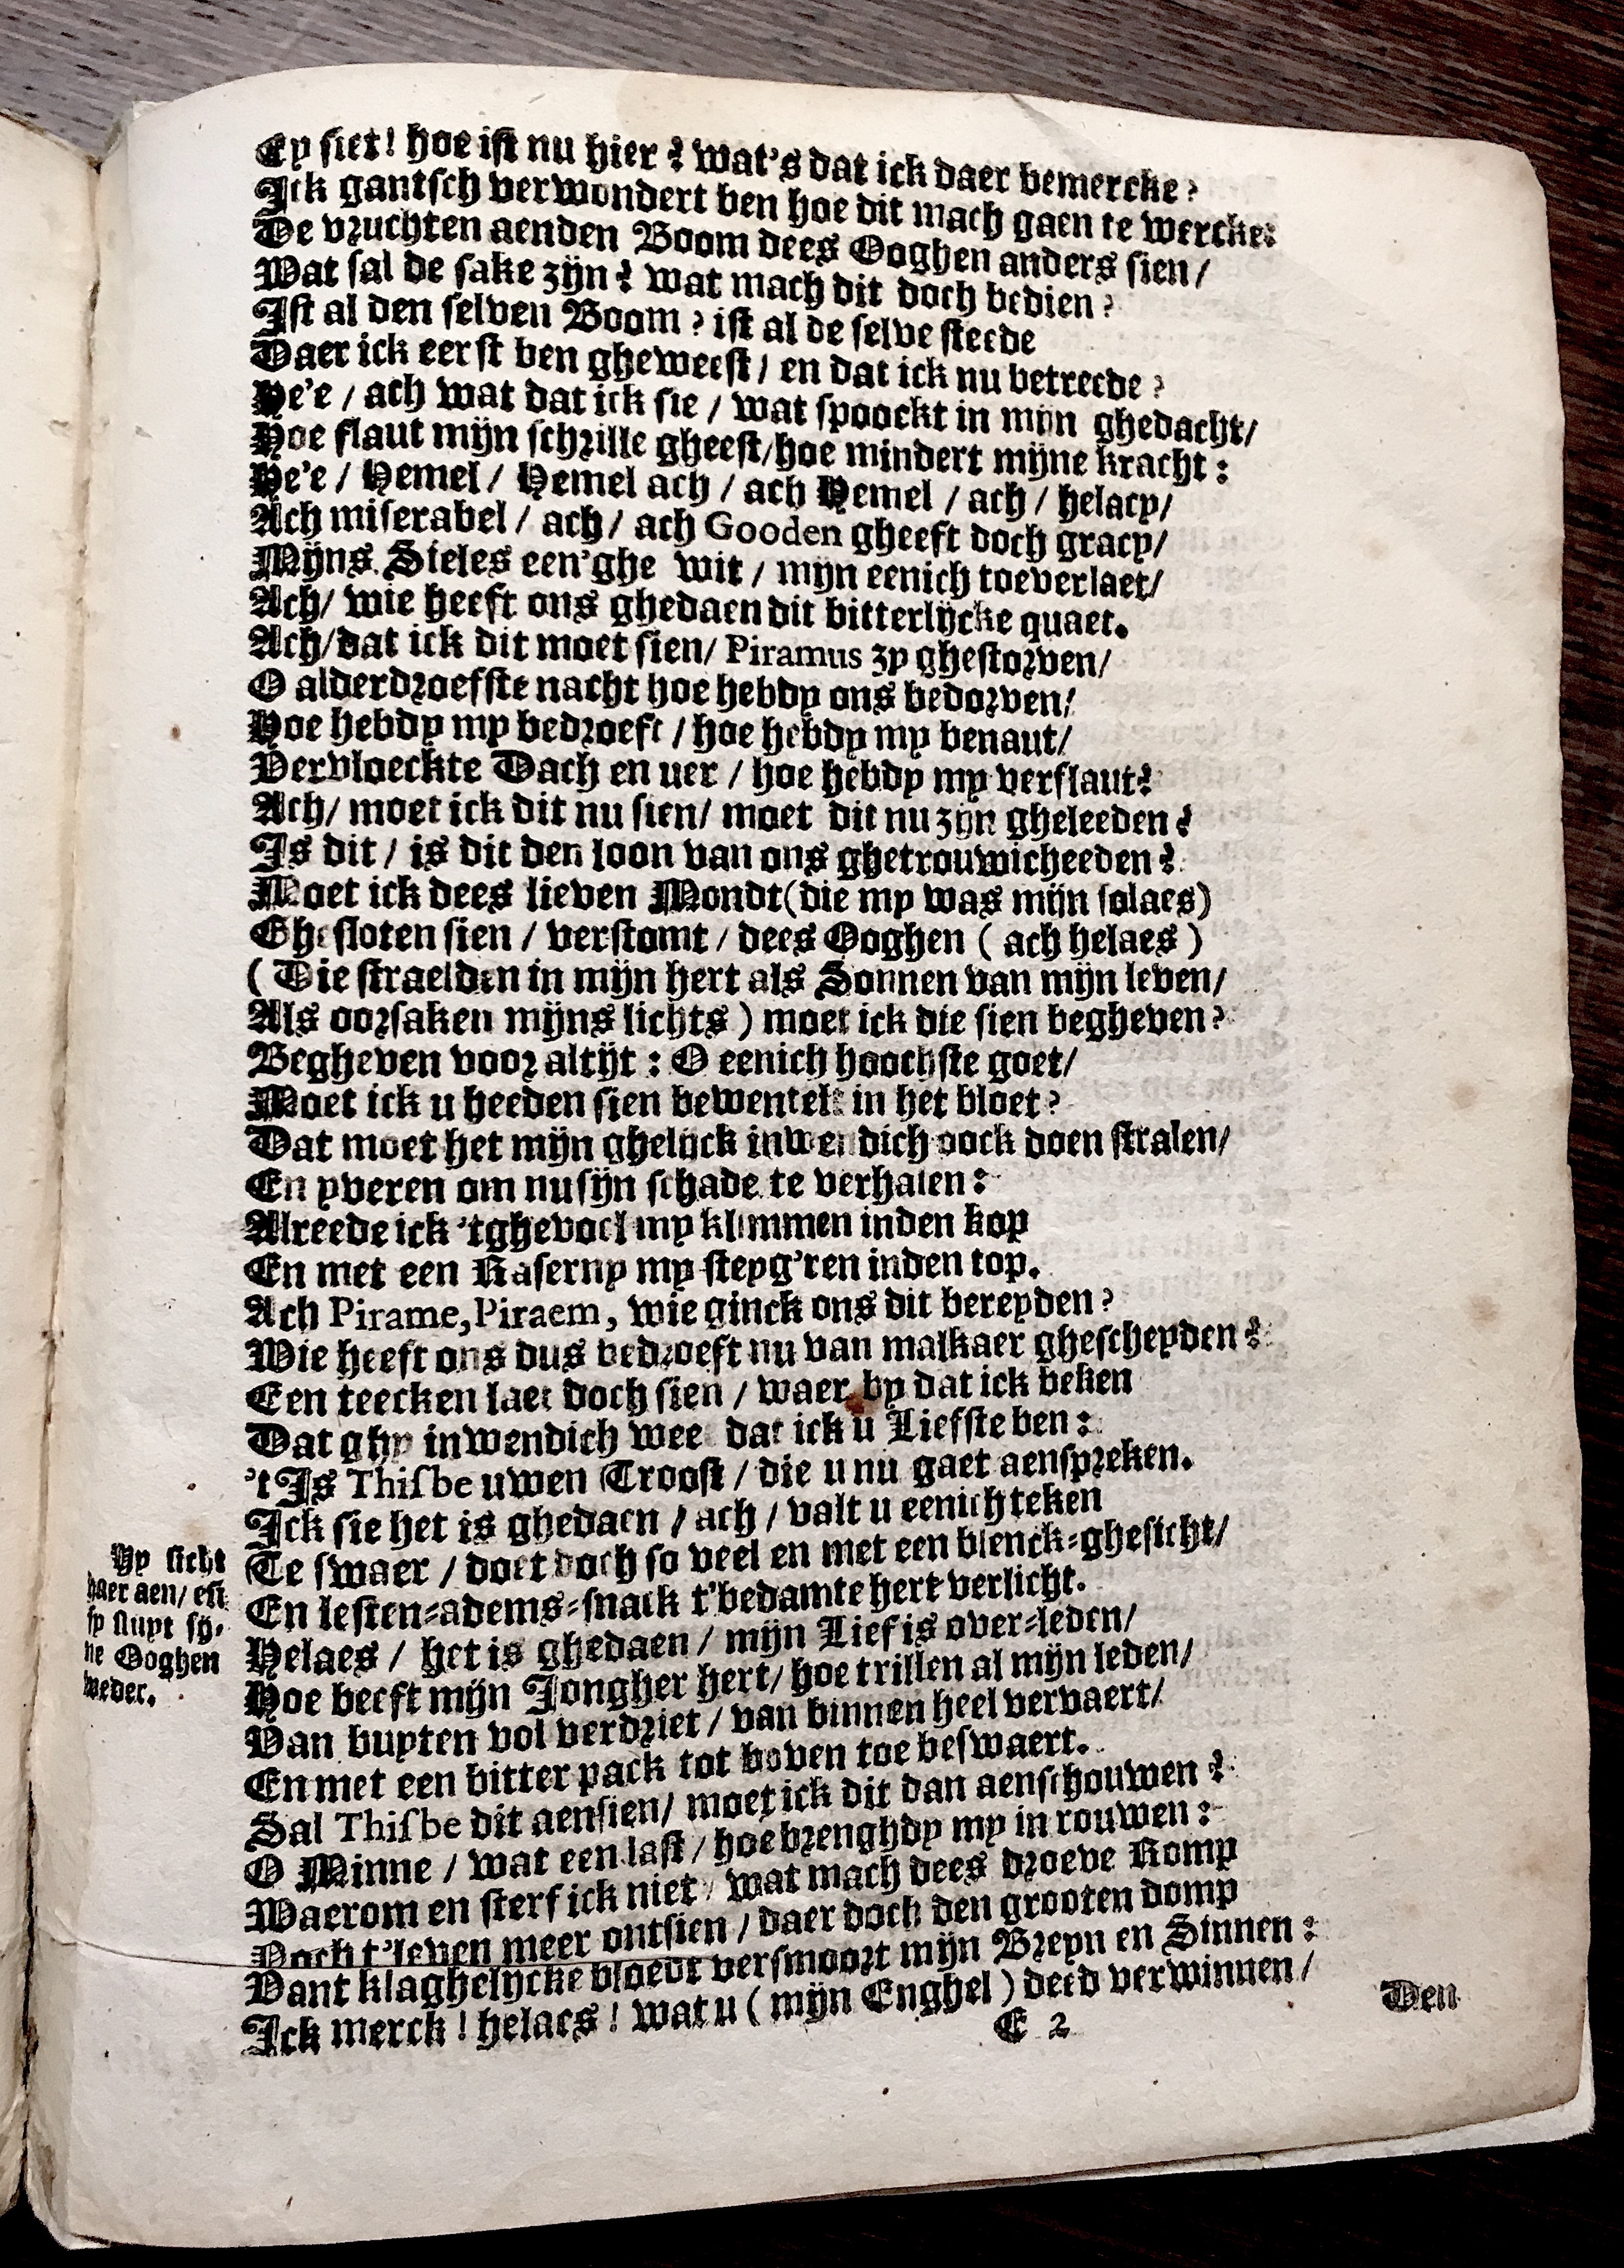 Ey siet! hoe ist nu hier? wat's dat ick daer bemercke?
Ick gantsch verwondert ben hoe dit mach gaen te wercke:
De vruchten aenden Boom dees Ooghen anders sien/
Wat sal de sake zijn? wat mach dit doch bedien?
Ist al den selven Boom? ist al de selve steede
Daer ick eerst ben gheweest/ en dat ick nu betreede?
He'e / ach wat dat ick sie / wat spoockt in mijn ghedacht/
Hoe flaut mijn schrille gheest/hoe mindert mijne kracht:
He'e / Hemel / Hemel ach / ach Hemel / ach / helacy/
Ach miserabel / ach / ach Gooden gheeft doch gracy/
Mijns Sieles een'ghe wit / mijn eenich toeverlaet/
Ach/ wie heeft ons ghedaen dit bitterlijcke quaet.
Ach/dat ick dit moet sien/ Piramus zy ghestorven/
O alderdroefste nacht hoe hebdy ons bedorven/
Hoe hebdy my bedroeft / hoe hebdy my benaut/
Vervloeckte Dach en uer / hoe hebdy my verflaut?
Ach/ moet ick dit nu sien/ moet dit nu zijn gheleeden?
Is dit / is dit den loon van ons ghetrouwicheeden?
Moet ick dees lieven Mondt(die my was mijn solaes)
Ghesloten sien / verstomt / dees Ooghen ( ach helaes )
( Die straelden in mijn hert als Sonnen van mijn leven/
Als oorsaken mijns lichts ) moet ick die sien begheven?
Begheven voor altijt : O eenich hoochste goet/
Moet ick u heeden sien bewentelt in het bloet?
Dat moet het mijn ghelijck inwendich oock doen stralen/
En yveren om nu sijn schade te verhalen:
Alreede ick 'tghevoel my klimmen inden kop
En met een Raserny my steyg'ren inden top.
Ach Pirame, Piraem, wie ginck ons dit bereyden?
Wie heeft ons dus bedroeft nu van malkaer ghescheyden?
Een teecken laet doch sien / waer by dat ick beken
Dat ghy inwendich weet dat ick u Liefste ben:
't Is Thisbe uwen Troost / die u nu gaet aenspreken.
Ick sie het is ghedaen / ach / valt u eenich teken
Te swaer / doet doch so veel en met een blenck-ghesicht/
En lesten-adems-snack t'bedamte hert verlicht.
Hy sicht
haer aen/ en
sy sluyt sij-
ne Ooghen
weder.
Helaes / het is ghedaen / mijn Lief is over-leden/
Hoe beeft mijn Jongher hert/ hoe trillen al mijn leden/
Van buyten vol verdriet / van binnen heel vervaert/
En met een bitter pack tot boven toe beswaert.
Sal Thisbe dit aensien/ moet ick dit dan aenschouwen?
O Minne / wat een last / hoe brenghdy my in rouwen:
Waerom en sterf ick niet/ wat mach dees droeve Romp
Noch t'leven meer ontsien / daer doch den grooten domp
Vant klaghelijcke bloedt versmoort mijn Breyn en Sinnen:
Ick merck! helaes! wat u ( mijn Enghel ) deed verwinnen/
E 2
Den